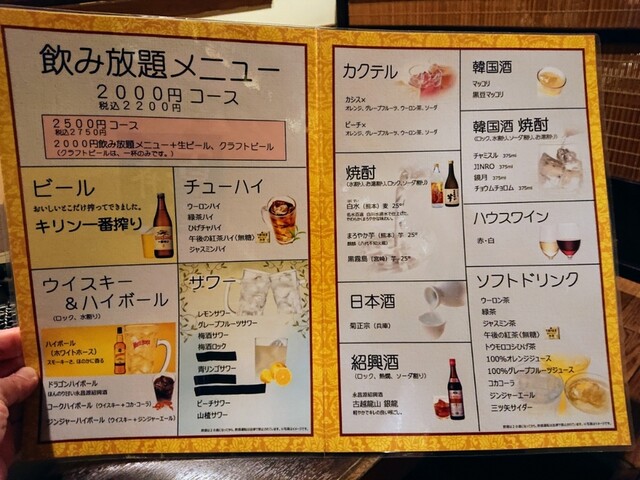 飲み放題メニュー
2000円 コース
税込2200円
2500円 コース
税込2750円
2000円飲み放題メニュー＋生ビール、クラフトビール
(クラフトビールは、一杯のみです。)
ビール
おいしいとこだけ搾ってできました。
キリン一番搾り
チューハイ
ウーロンハイ
緑茶ハイ
ひげチャハイ
午後の紅茶ハイ(無糖)
ジャスミンハイ
ウイスキー
＆ハイボール
(ロック、水割り)
ハイボール
(ホワイトホース)
スモーキーさ、ほのかに香る
ドラゴンハイボール
ほんのり甘い永昌源紹興酒
コークハイボール (ウイスキー＋コカ・コーラ)
ジンジャーハイボール (ウイスキー＋ジンジャーエール)
サワー
レモンサワー
グレープフルーツサワー
梅酒サワー
梅酒ロック
青リンゴサワー
ピーチサワー
山楂サワー
カクテル
カシス×
オレンジ、グレープフルーツ、ウーロン茶、ソーダ
ピーチ×
オレンジ、グレープフルーツ、ウーロン茶、ソーダ
焼酎
(水割り、お湯割り、ロック、ソーダ割り)
白水 (熊本) 麦 25°
まろやか芋 (熊本) 芋 25°
黒霧島 (宮崎) 芋 25°
日本酒
菊正宗 (兵庫)
紹興酒
(ロック、熱燗、ソーダ割り)
永昌源紹興酒
古越龍山 銀龍
韓国酒
マッコリ
黒豆マッコリ
韓国酒 焼酎
(ロック、水割り、お湯割り、ソーダ割り)
チャミスル 375ml
JINRO 375ml
鏡月 375ml
チョウムチョロム 375ml
ハウスワイン
赤・白
ソフトドリンク
ウーロン茶
緑茶
ジャスミン茶
午後の紅茶(無糖)
トウモロコシひげ茶
100%オレンジジュース
100%グレープフルーツジュース
コカコーラ
ジンジャーエール
三ツ矢サイダー